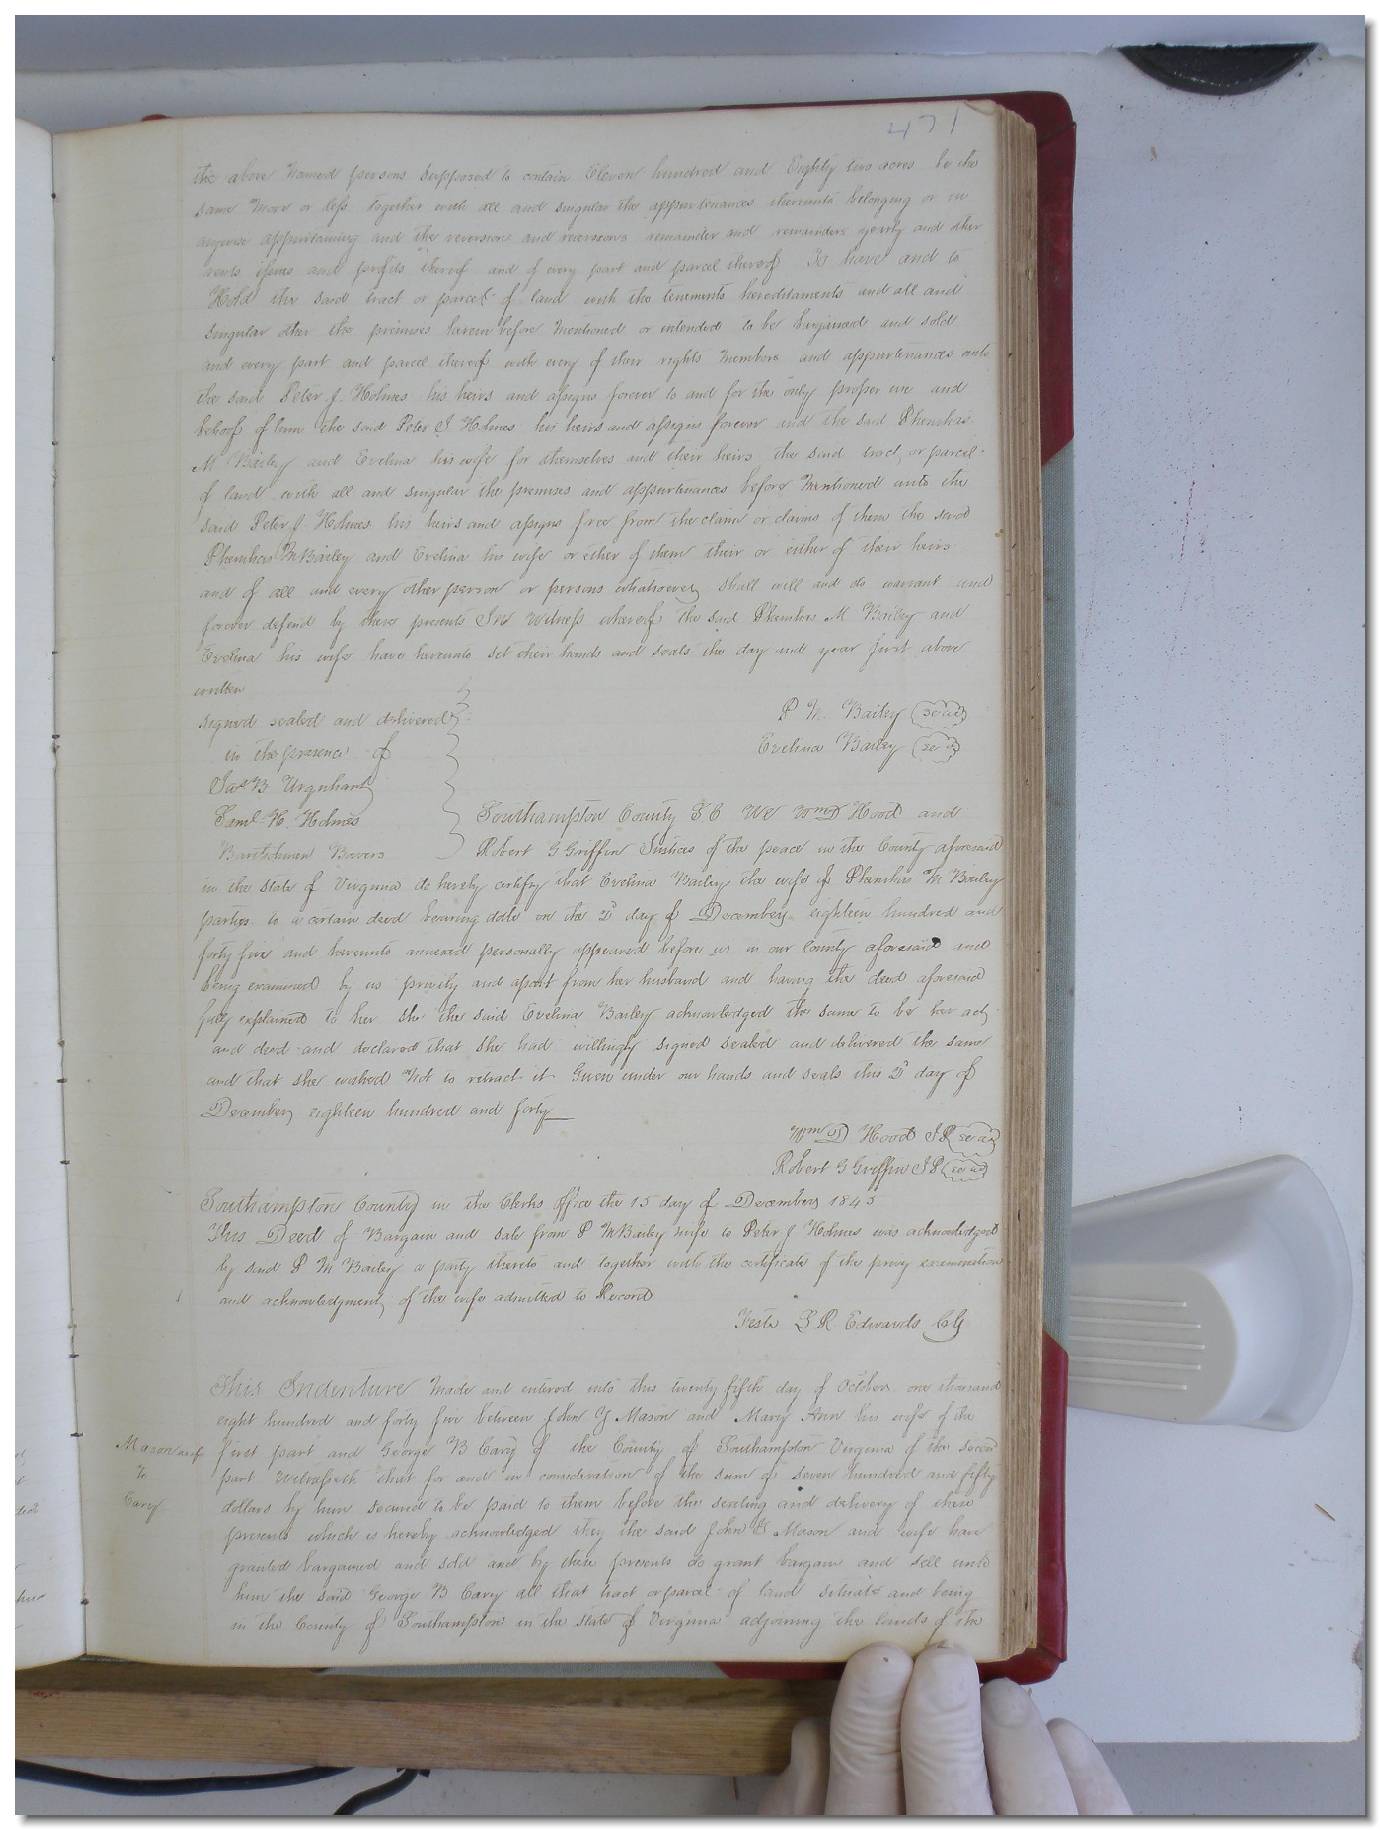 471
the above Named persons supposed to contain Eleven hundred and Eighty two acres be the
same More or less together with all and singular the appurtenances thereunto belonging or in
anywise appurtaining and the reversion and reversions remainder and remainders yearly and other
rents issues and profits thereof and of every part and parcel thereof To have and to
Hold the said tract or parcel of land with the tenements hereditaments and all and
singular other the premises herein before Mentioned or intended to be bargained and sold
and every part and parcel thereof with every of their rights Members and appurtenances unto
the said Peter J. Holmes his heirs and assigns forever to and for the only proper use and
behoof of him the said Peter J Holmes his heirs and assigns forever and the said Phenihas
M Bailey and Evelina his wife for themselves and their heirs the said tract or parcel
of land with all and singular the premises and appurtenances before Mentioned unto the
said Peter J. Holmes his heirs and assigns free from the claim or claims of them the said
Phenihas M Bailey and Evelina his wife or either of them their or either of their heirs
and of all and every other person or persons whatsoever shall will and do warrant and
forever defend by these presents In Witness whereof the said Phenihas M Bailey and
Evelina his wife have hereunto set their hands and seals the day and year first above
written
signed sealed and delivered
P M. Bailey (seal)
in the presence of
Evelina Bailey (seal)
Jas B Urquhart
Saml. H. Holmes
Southampton County SC We Wm D Hood and
Bowers
Robert G Griffin Justices of the peace in the County aforesaid
in the State of Virginia do hereby certify that Evelina Bailey the wife of Phenihas M Bailey
parties to a certain deed bearing date on the 2d day of December eighteen hundred and
forty five and hereunto annexed personally appeared before us in our County aforesaid and
being examined by us privily and apart from her husband and having the deed aforesaid
fully explained to her she the said Evelina Bailey acknowledged the same to be her act
and deed and declared that she had willingly signed sealed and delivered the same
and that she wished Not to retract it Given under our hands and seals this 2d day of
December eighteen hundred and forty
Wm D Hood J P (seal)
Robert G Griffin J P (seal)
Southampton County in the Clerks Office the 15 day of December 1845
This Deed of Bargain and sale from P M Bailey wife to Peter J Holmes was acknowledged
by said P M Bailey a party thereto and together with the certificate of the privy examination
and acknowledgment of the wife admitted to Record
Teste L R Edwards
This Indenture Made and entered into this twenty fifth day of October one thousand
eight hundred and forty five between John Y Mason and Mary Ann his wife of the
Mason wife
first part and George B Cary of the County of Southampton Virginia of the second
to
part Witnesseth that for and in consideration of the sum of seven hundred and fifty
Cary
dollars by him secured to be paid to them before the sealing and delivery of these
presents which is hereby acknowledged they the said John Y Mason and wife have
granted bargained and sold and by these presents do grant bargain and sell unto
him the said George B Cary all that tract or parcel of land situate and being
in the County of Southampton in the State of Virginia adjoining the lands of the